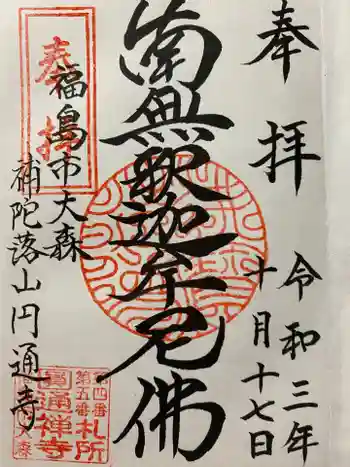 奉拝
令和三年
十月十七日
南無釈迦牟尼佛
奉拝
福島市大森
補陀落山円通寺
第四番
第五番
札所
圓通禅寺